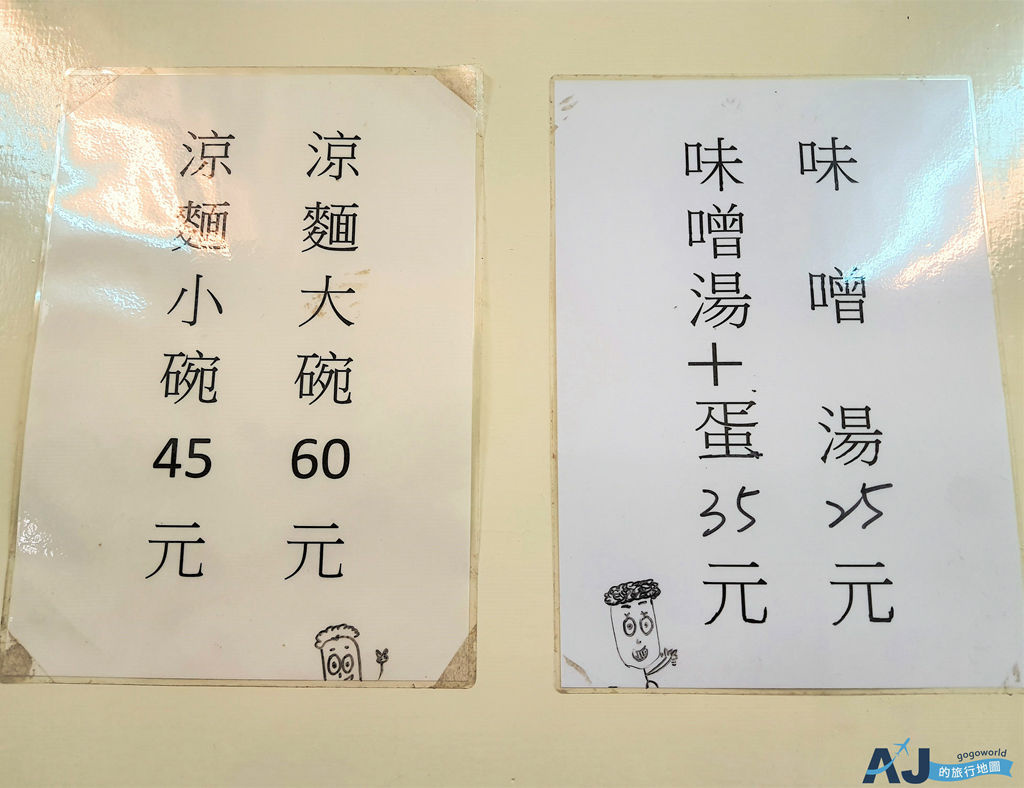 涼麵大碗60元
涼麵小碗45元
味噌湯25元
味噌湯+蛋35元
AJ
gogoworld
的旅行地圖